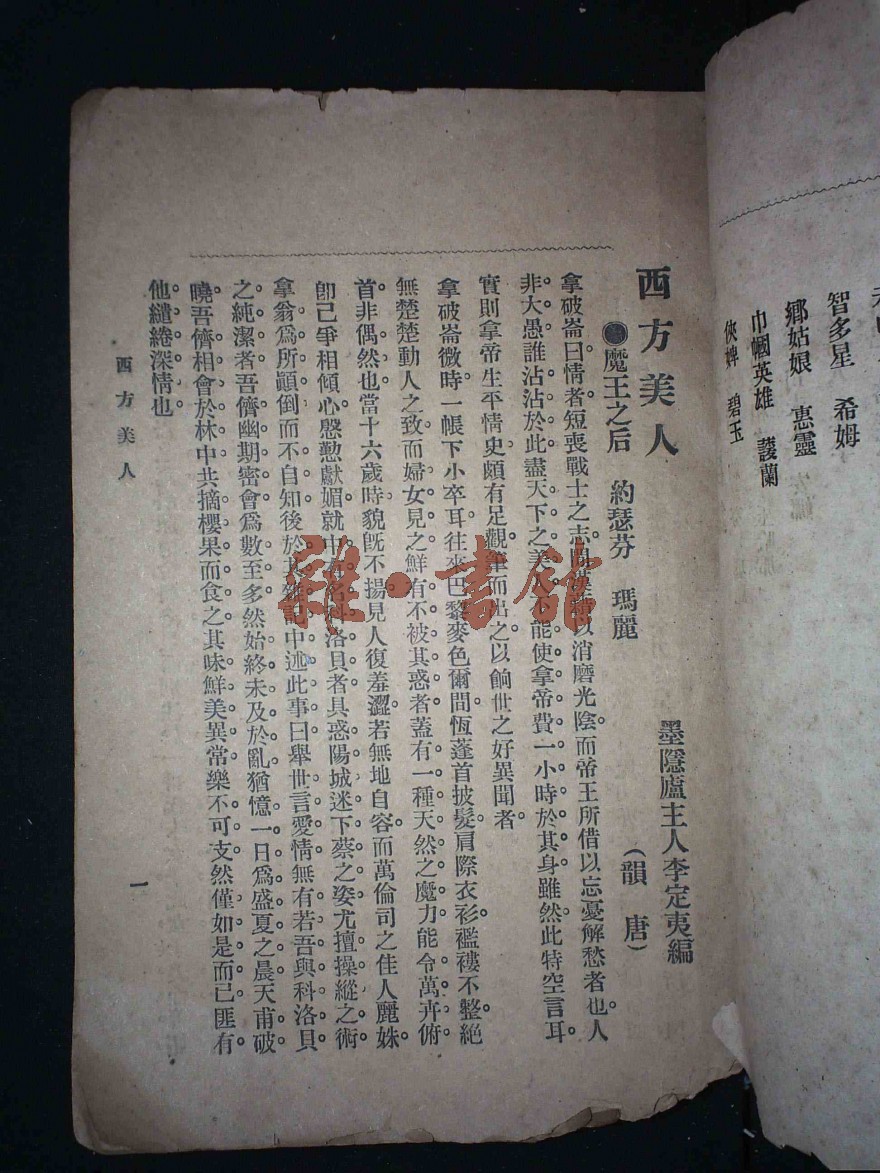 智多星 希姆
鄉姑娘 惠靈
巾幗英雄 護蘭
俠婢 碧玉
西方美人
墨隱廬主人李定夷編
●魔王之后 約瑟芬 瑪麗 (韻唐)
拿破崙曰情者短喪戰士之志以消磨光陰而帝王所借以忘憂解愁者也人
非大愚誰沾沾於此盡天下之美人不能使拿帝費一小時於其身雖然此特空言耳
實則拿帝生平情史頗有足觀筆而出之以餉世之好異聞者
拿破崙微時一帳下小卒耳往來巴黎麥色爾間恆蓬首披髮肩際衣衫襤褸不整絕
無楚楚動人之致而婦女見之鮮有不被其惑者蓋有一種天然之魔力能令萬卉俯
首非偶然也當十六歲時貌旣不揚見人復羞澀若無地自容而萬倫司之佳人麗姝
卽已爭相傾心慇懃獻媚就中有名科洛貝者具惑陽城迷下蔡之姿尤擅操縱之術
拿翁爲所顚倒而不自知後於其雜記中述此事曰舉世言愛情無有若吾與科洛貝
之純潔者吾儕幽期密會爲數至多然始終未及於亂猶憶一日爲盛夏之晨天甫破
曉吾儕相會於林中共摘櫻果而食之其味鮮美異常樂不可支然僅如是而已匪有
他繾綣深情也
西方美人
一
雜·書館